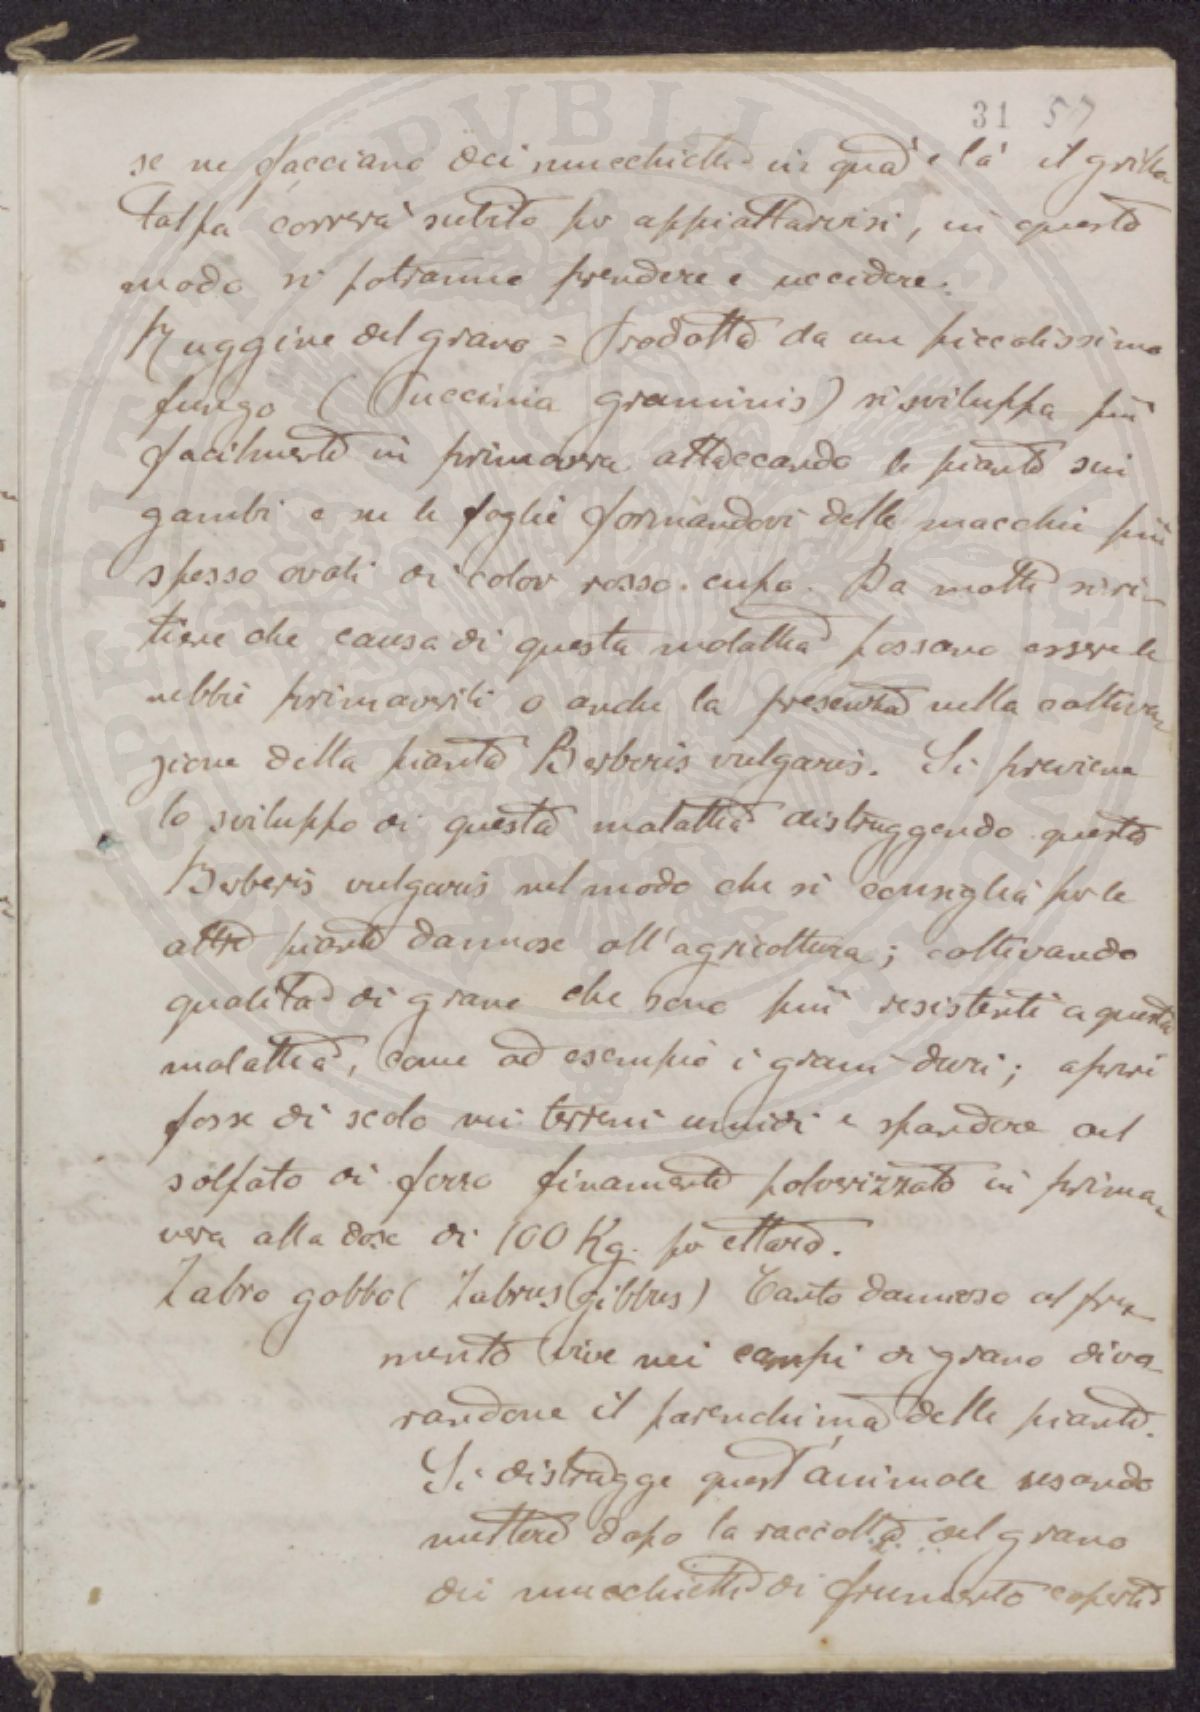 31 57
se ne facciano dei mucchietti in quà e là il grillo
talpa correrà subito per appiattarvisi, in questo
modo si potranno prendere e uccidere.
Ruggine del grano = Prodotta da un piccolissimo
fungo (Puccinia graminis) si sviluppa più
facilmente in primavera attaccando le piante sui
gambi e su le foglie formandovi delle macchie più
spesso ovali di color rosso cupo. Da molti si ri-
tiene che causa di questa malattia possano essere le
nebbie primaverili o anche la presenza nella coltiva-
zione della pianta Berberis vulgaris. Si previene
lo sviluppo di questa malattia distruggendo questo
Berberis vulgaris nel modo che si consiglia per le
altre piante dannose all'agricoltura; coltivando
qualità di grano che sono più resistenti a questa
malattia, come ad esempio i grani duri; aprire
fosse di scolo nei terreni umidi e spandere del
solfato di ferro finamente polverizzato in prima-
vera alla dose di 100 Kg. per ettaro.
Zabro gobbo (Zabrus gibbus) Tanto dannoso al fru-
mento vive nei campi di grano divo-
randone il parenchima delle piante.
Si distrugge quest'animale usando
mettere dopo la raccolta del grano
dei mucchietti di frumento coperti
PUBLICAE